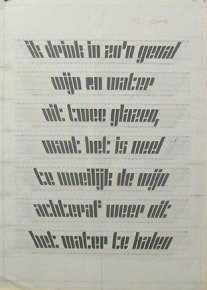 ik drink in zo'n geval
wijn en water
uit twee glazen,
want het is veel
te moeilijk de wijn
achteraf weer uit
het water te halen